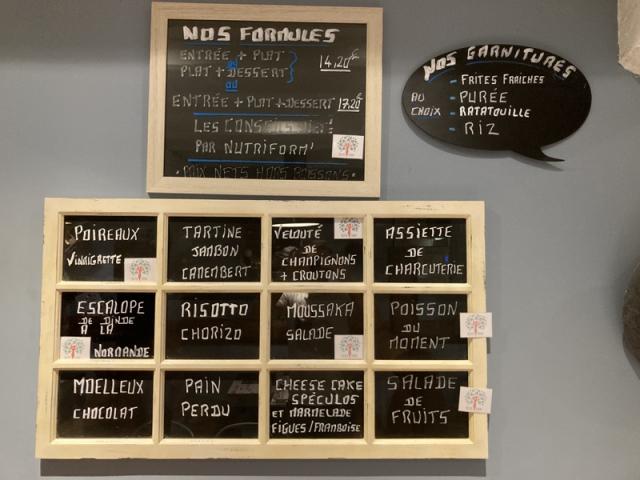 NOS FORMULES
ENTRÉE + PLAT
OU
PLAT + DESSERT
14,20€
OU
ENTRÉE + PLAT + DESSERT 17,20€
LES
PAR NUTRIFORM'
PRIX NETS HORS BOISSONS
NOS GARNITURES
AU CHOIX
- FRITES FRAÎCHES
- PURÉE
- RATATOUILLE
- RIZ
POIREAUX
VINAIGRETTE
TARTINE
JAMBON
CAMEMBERT
VELOUTÉ
DE
CHAMPIGNONS
+ CROUTONS
ASSIETTE
DE
CHARCUTERIE
ESCALOPE
DE DINDE
À LA
NORMANDE
RISOTTO
CHORIZO
MOUSSAKA
SALADE
POISSON
DU
MOMENT
MOELLEUX
CHOCOLAT
PAIN
PERDU
CHEESE CAKE
SPÉCULOS
ET MARMELADE
FIGUES/FRAMBOISE
SALADE
DE
FRUITS